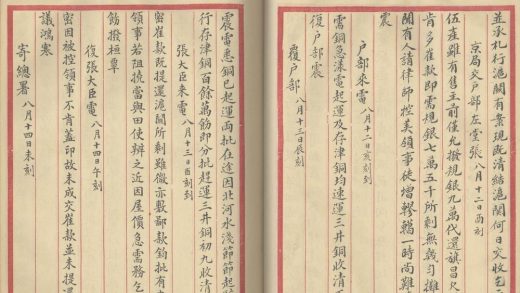 並承札行滬關有案現既清結滬關何日交收乞
京局交戶部左堂張 八月十二日酉刻
伍產雖有售主前僅允撥規銀九萬代還旗昌
肯多崔款即需規銀七萬五千所剩無幾勻攤
關有人請律師控美領事徒增轇轕一時尚難
震
戶部來電 八月十二亥刻到
銅急漾電起運及存津銅均速運三井銅收清
復戶部震
覆戶部 八月十三日辰刻
震電悉銅已起運兩批在途因北河水淺節節起
行存津銅百餘萬觔即分批趕運三井銅初九收清
張大臣來電 八月十三日酉刻到
密崔款既提還滬關所剩雖微亦鄙款鈞批有
領事若阻撓當與田使辨之近因屋價急需務乞
飭撥桓覃
復張大臣電 八月十四日午刻
密因被控領事不肯蓋印故未成交崔款並未提還
議鴻寒
寄總署 八月十四日未刻